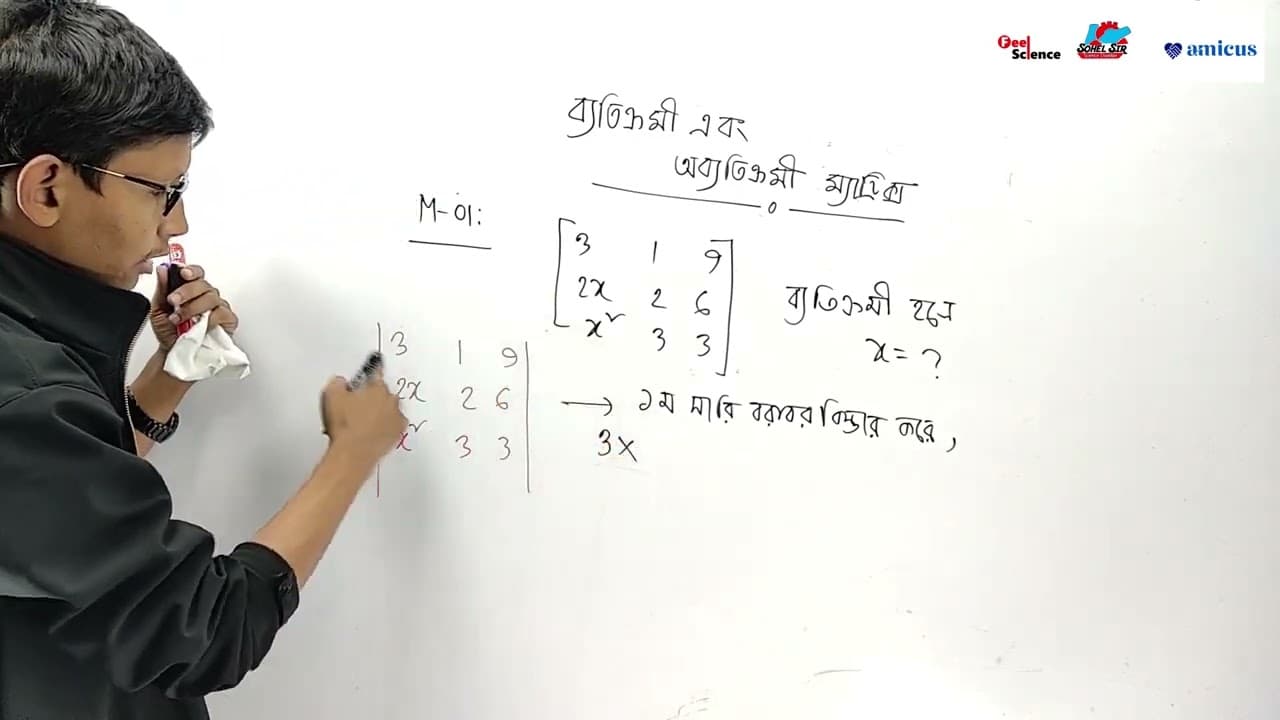 Feel Science
SOHEL SIR
amicus
ব্যতিক্রমী এবং
অব্যতিক্রমী ম্যাট্রিক্স
M-01:
3 1 9
2x 2 6
x² 3 3
ব্যতিক্রমী হলে
x = ?
3 1 9
2x 2 6
x² 3 3
→ ১ম সারি বরাবর বিস্তার করে,
3×